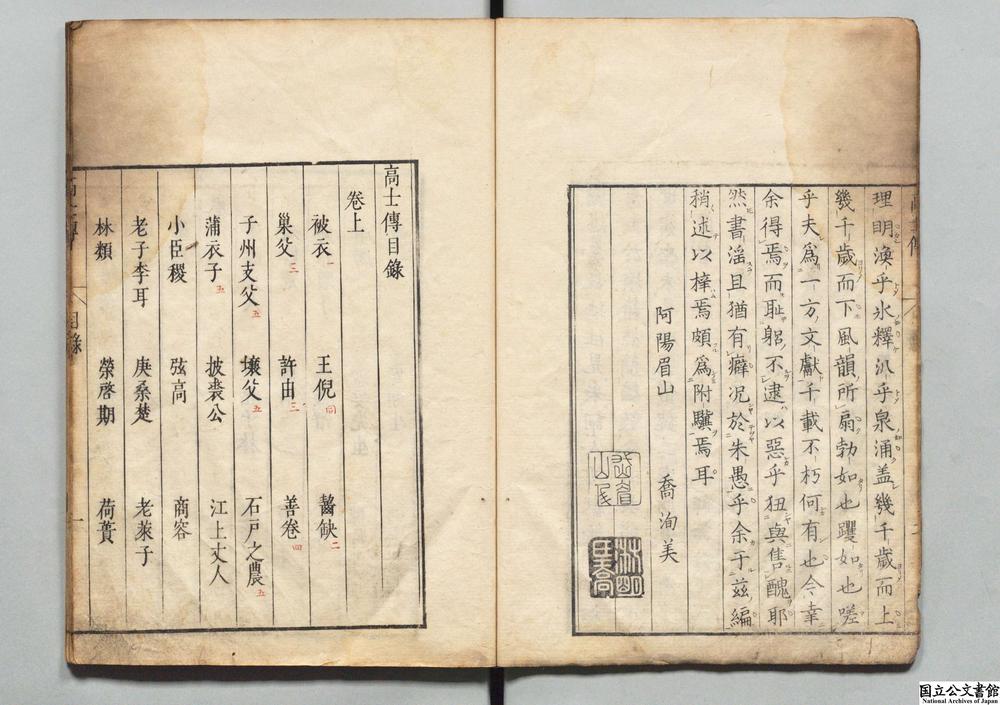 理明渙乎氷釋汎乎泉涌盖幾千歳而上
幾千歳而下風韻所扇勃如也躍如也嗟
乎夫爲一方文獻千載不朽何有也今幸
余得焉而耻躬不逮以惡乎狃與售醜耶
然書滛且猶有癖况於朱愚乎余于茲編
稍述以梓焉頗爲附驥焉耳
阿陽眉山 喬洵美
高士傳目錄
卷上
被衣一 王倪同 齧缺二
巢父三 許由三 善卷四
子州支父五 壤父五 石戸之農五
蒲衣子五 披裘公 江上丈人
小臣稷 弦高 商容
老子李耳 庚桑楚 老萊子
林類 榮啓期 荷蕢
目錄 一
国立公文書館
National Archives of Japan